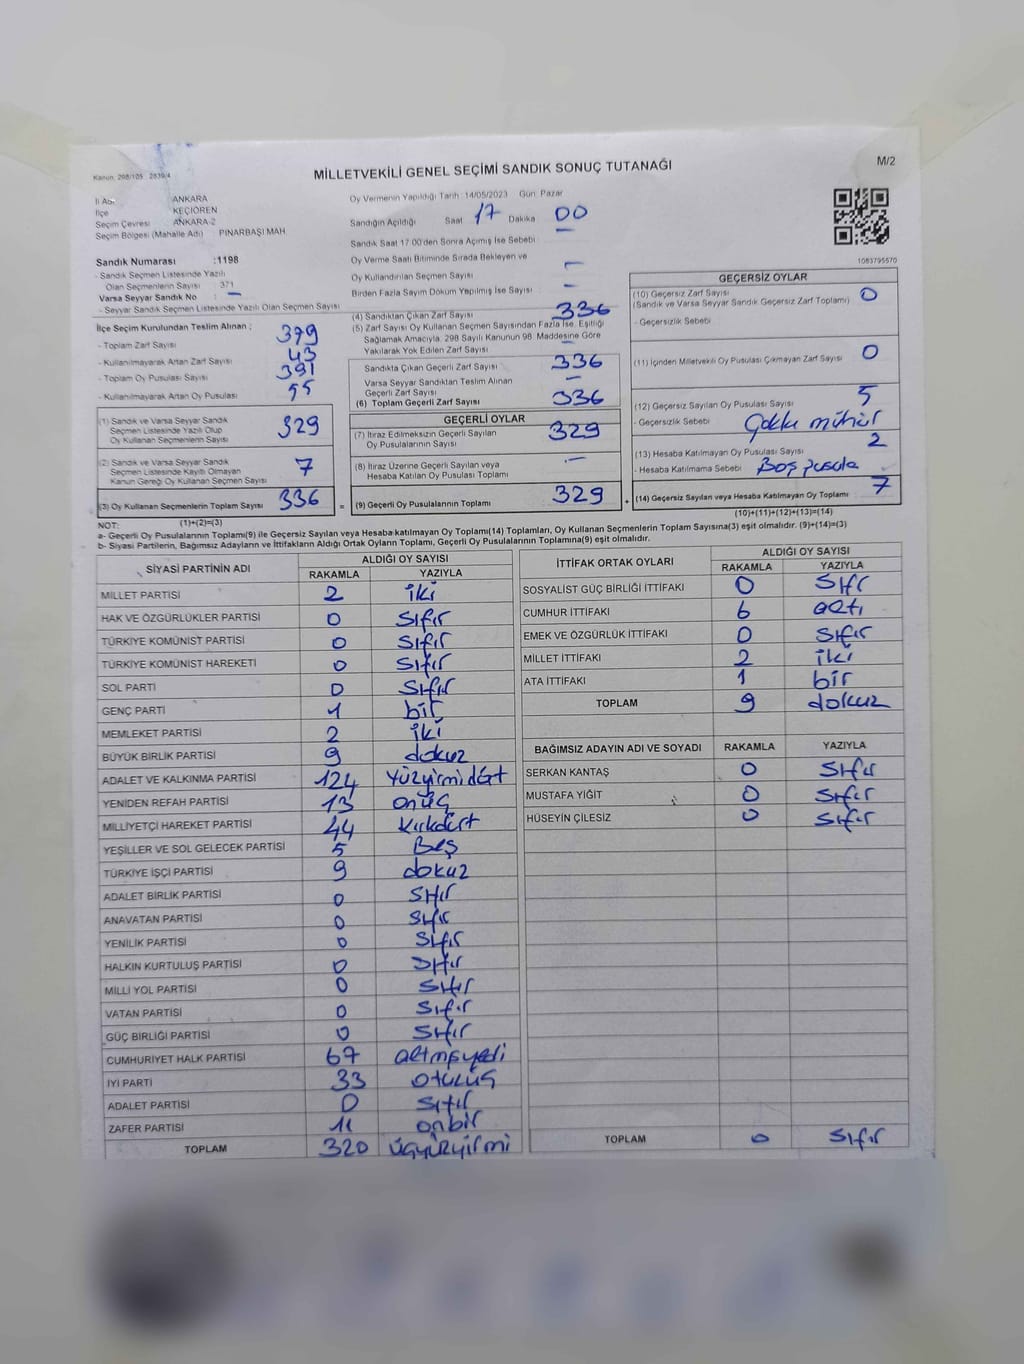 MİLLETVEKİLİ GENEL SEÇİMİ SANDIK SONUÇ TUTANAĞI
M/2
Kanun, 298/105 2839/4
İl Adı ANKARA
İlçe KEÇİÖREN
Seçim Çevresi ANKARA-2
Seçim Bölgesi (Mahalle Adı) PINARBAŞI MAH
Sandık Numarası :1198
- Sandık Seçmen Listesinde Yazılı
Olan Seçmenlerin Sayısı 371
Varsa Seyyar Sandık No –
- Seyyar Sandık Seçmen Listesinde Yazılı Olan Seçmen Sayısı
İlçe Seçim Kurulundan Teslim Alınan ;
- Toplam Zarf Sayısı 379
- Kullanılmayarak Artan Zarf Sayısı 43
- Toplam Oy Pusulası Sayısı 391
- Kullanılmayarak Artan Oy Pusulası 55
(1) Sandık ve Varsa Seyyar Sandık
Seçmen Listesinde Yazılı Olup
Oy Kullanan Seçmenlerin Sayısı 329
(2) Sandık ve Varsa Seyyar Sandık
Seçmen Listesinde Kayıtlı Olmayan
Kanun Gereği Oy Kullanan Seçmen Sayısı 7
(3) Oy Kullanan Seçmenlerin Toplam Sayısı 336 =
(1)+(2)=(3)
Oy Vermenin Yapıldığı Tarih :14/05/2023 Gün: Pazar
Sandığın Açıldığı Saat 17 Dakika 00
Sandık Saat 17:00'den Sonra Açılmış İse Sebebi –
Oy Verme Saati Bitiminde Sırada Bekleyen ve
Oy Kullandırılan Seçmen Sayısı –
Birden Fazla Sayım Döküm Yapılmış İse Sayısı –
(4) Sandıktan Çıkan Zarf Sayısı 336
(5) Zarf Sayısı Oy Kullanan Seçmen Sayısından Fazla İse, Eşitliği
Sağlamak Amacıyla, 298 Sayılı Kanunun 98. Maddesine Göre
Yakılarak Yok Edilen Zarf Sayısı –
Sandıkta Çıkan Geçerli Zarf Sayısı 336
Varsa Seyyar Sandıktan Teslim Alınan
Geçerli Zarf Sayısı –
(6) Toplam Geçerli Zarf Sayısı 336
GEÇERLİ OYLAR
(7) İtiraz Edilmeksizin Geçerli Sayılan
Oy Pusulalarının Sayısı 329
(8) İtiraz Üzerine Geçerli Sayılan veya
Hesaba Katılan Oy Pusulası Toplamı –
(9) Geçerli Oy Pusulalarının Toplamı 329 +
1083795570
GEÇERSİZ OYLAR
(10) Geçersiz Zarf Sayısı
(Sandık ve Varsa Seyyar Sandık Geçersiz Zarf Toplamı) 0
- Geçersizlik Sebebi
(11) İçinden Milletvekili Oy Pusulası Çıkmayan Zarf Sayısı 0
(12) Geçersiz Sayılan Oy Pusulası Sayısı 5
- Geçersizlik Sebebi mühür
(13) Hesaba Katılmayan Oy Pusulası Sayısı 2
- Hesaba Katılmama Sebebi Boş pusula
(14) Geçersiz Sayılan veya Hesaba Katılmayan Oy Toplamı 7
(10)+(11)+(12)+(13)=(14)
NOT:
a- Geçerli Oy Pusulalarının Toplamı(9) ile Geçersiz Sayılan veya Hesaba Katılmayan Oy Toplamı(14) Toplamları, Oy Kullanan Seçmenlerin Toplam Sayısına(3) eşit olmalıdır. (9)+(14)=(3)
b- Siyasi Partilerin, Bağımsız Adayların ve İttifakların Aldığı Ortak Oyların Toplamı, Geçerli Oy Pusulalarının Toplamına(9) eşit olmalıdır.
SİYASİ PARTİNİN ADI ALDIĞI OY SAYISI
RAKAMLA YAZIYLA
MİLLET PARTİSİ 2 iki
HAK VE ÖZGÜRLÜKLER PARTİSİ 0 sıfır
TÜRKİYE KOMÜNİST PARTİSİ 0 sıfır
TÜRKİYE KOMÜNİST HAREKETİ 0 sıfır
SOL PARTİ 0 sıfır
GENÇ PARTİ 1 bir
MEMLEKET PARTİSİ 2 iki
BÜYÜK BİRLİK PARTİSİ 9 dokuz
ADALET VE KALKINMA PARTİSİ 124 Yüzyirmidört
YENİDEN REFAH PARTİSİ 13 onüç
MİLLİYETÇİ HAREKET PARTİSİ 44 Kırkdört
YEŞİLLER VE SOL GELECEK PARTİSİ 5 Beş
TÜRKİYE İŞÇİ PARTİSİ 9 dokuz
ADALET BİRLİK PARTİSİ 0 sıfır
ANAVATAN PARTİSİ 0 sıfır
YENİLİK PARTİSİ 0 sıfır
HALKIN KURTULUŞ PARTİSİ 0 sıfır
MİLLİ YOL PARTİSİ 0 sıfır
VATAN PARTİSİ 0 sıfır
GÜÇ BİRLİĞİ PARTİSİ 0 sıfır
CUMHURİYET HALK PARTİSİ 67 altmışyedi
İYİ PARTİ 33 otuzüç
ADALET PARTİSİ 0 sıfır
ZAFER PARTİSİ 11 onbir
TOPLAM 320 üçyüzyirmi
İTTİFAK ORTAK OYLARI ALDIĞI OY SAYISI
RAKAMLA YAZIYLA
SOSYALİST GÜÇ BİRLİĞİ İTTİFAKI 0 sıfır
CUMHUR İTTİFAKI 6 altı
EMEK VE ÖZGÜRLÜK İTTİFAKI 0 sıfır
MİLLET İTTİFAKI 2 iki
ATA İTTİFAKI 1 bir
TOPLAM 9 dokuz
BAĞIMSIZ ADAYIN ADI VE SOYADI RAKAMLA YAZIYLA
SERKAN KANTAŞ 0 sıfır
MUSTAFA YİĞİT 0 sıfır
HÜSEYİN ÇİLESİZ 0 sıfır
TOPLAM 0 sıfır